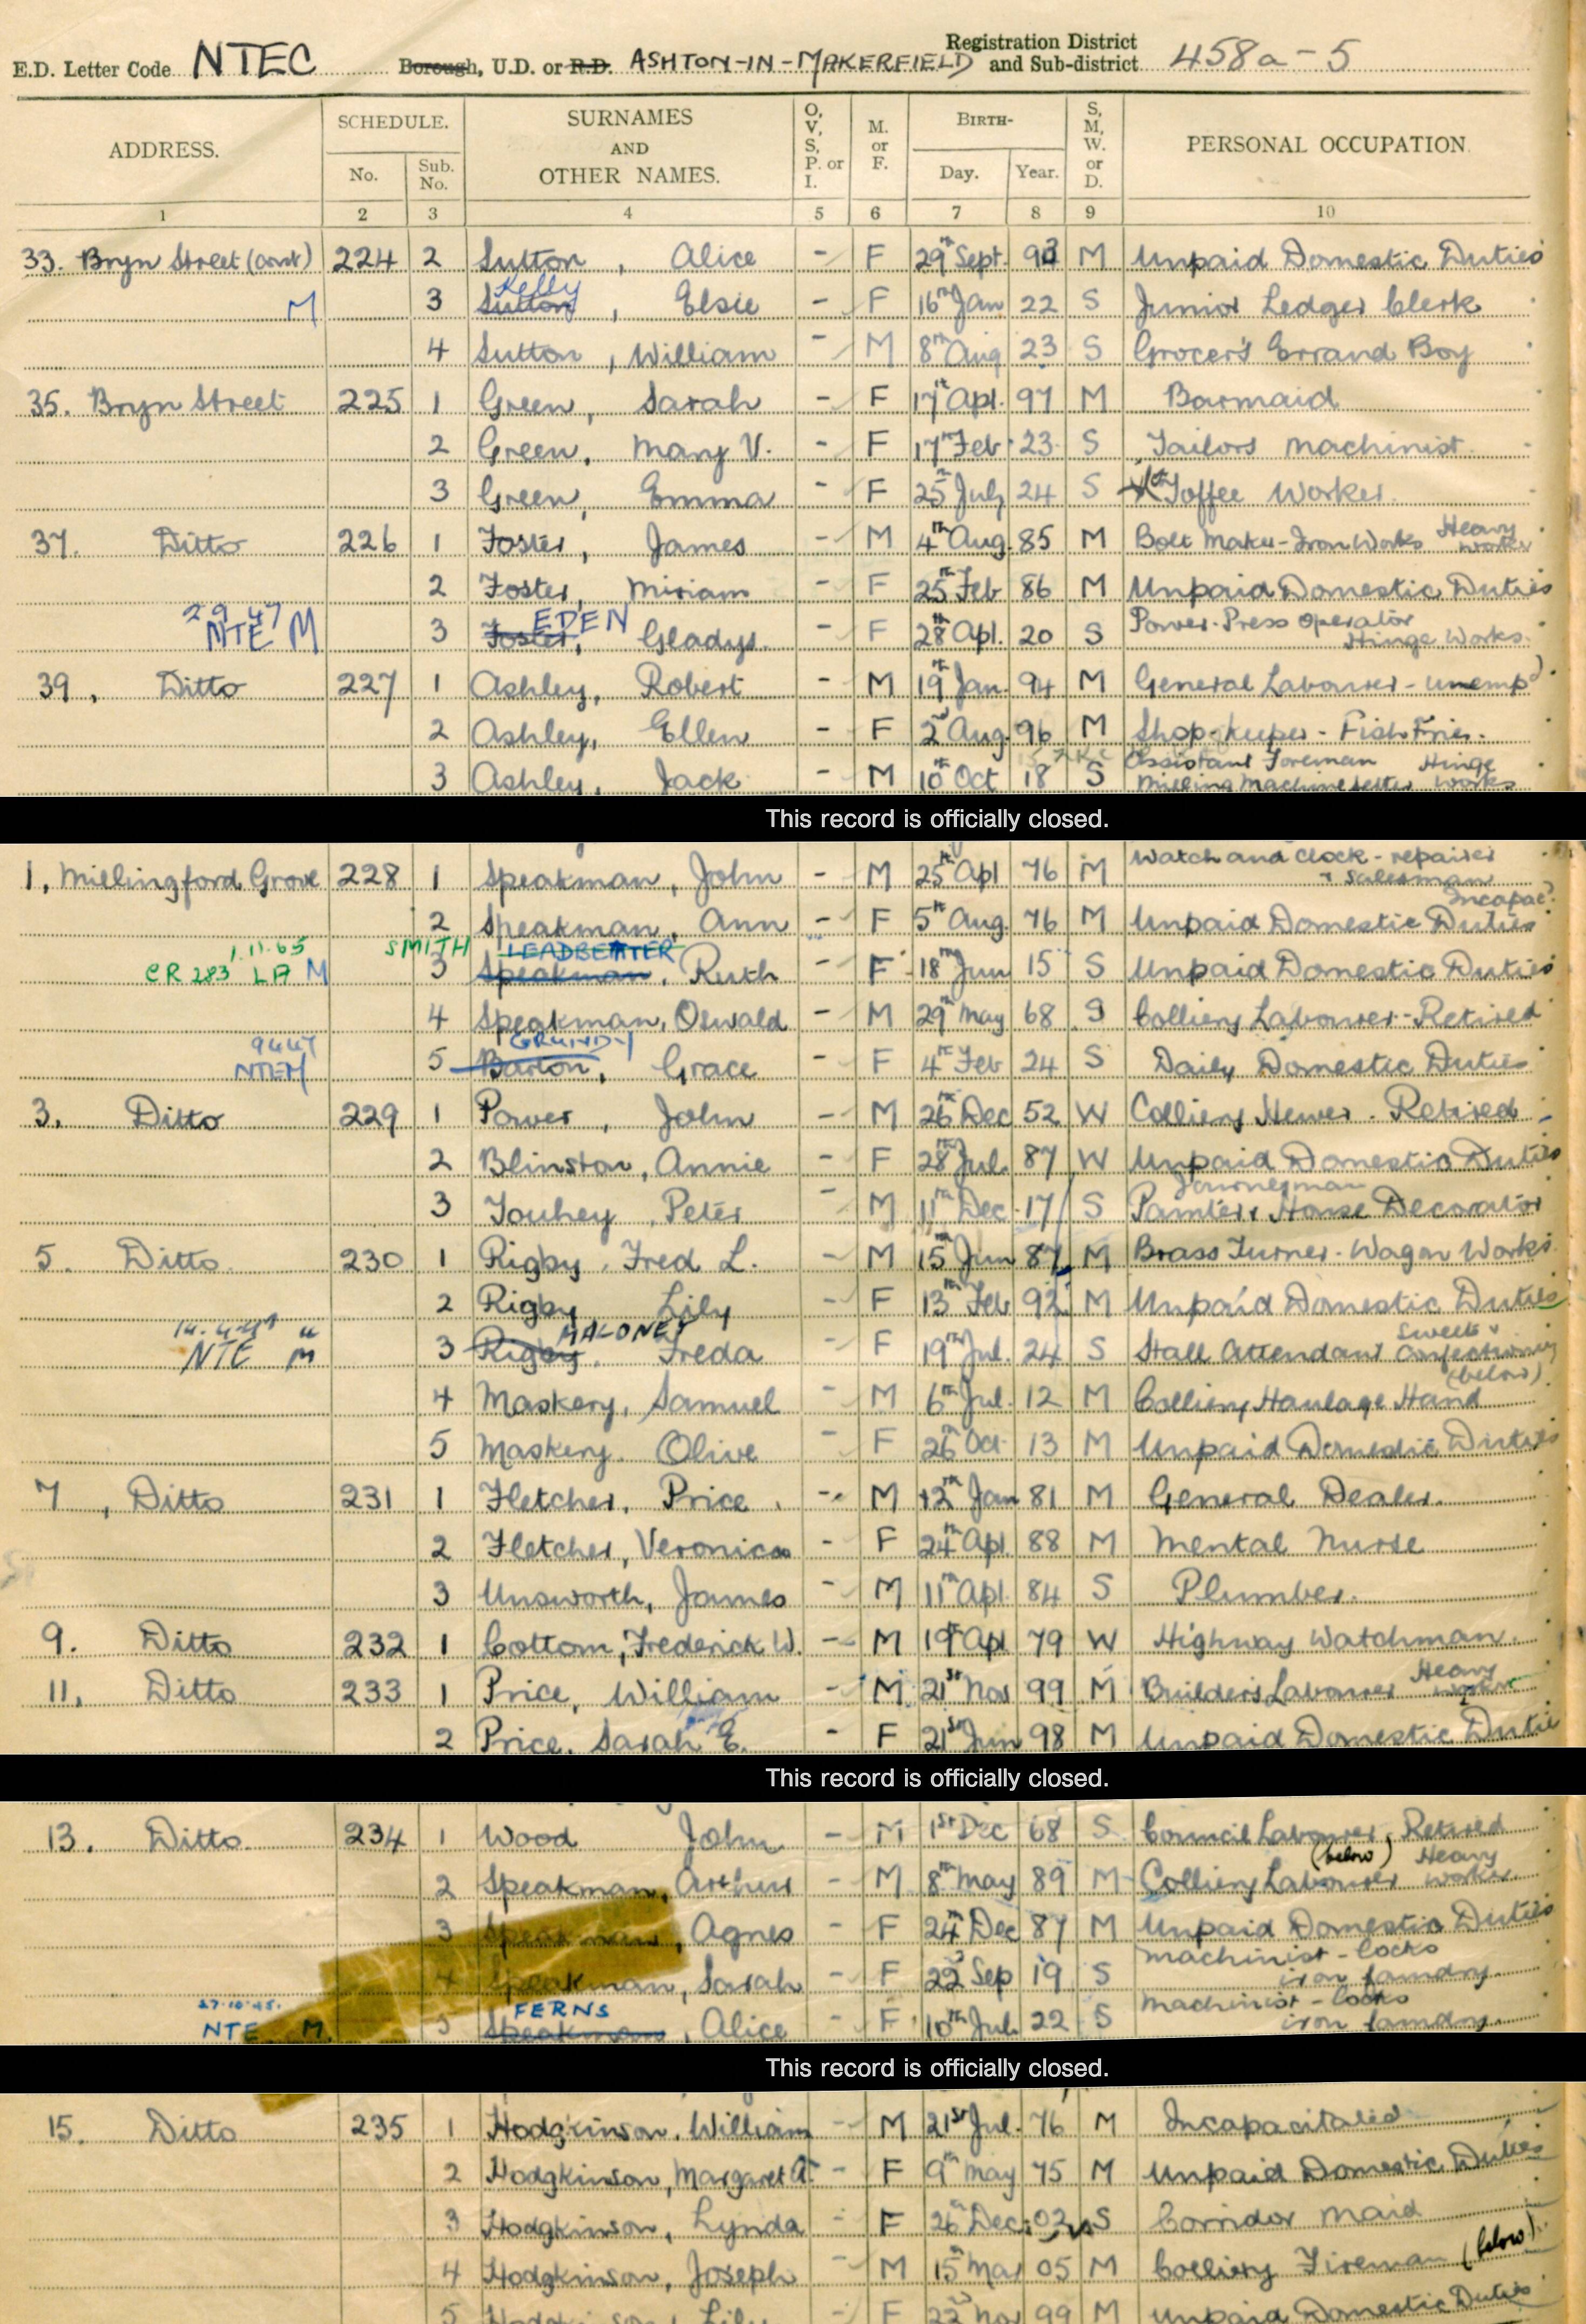 E.D. Letter Code NTEC Borough, U.D. or R.D. ASHTON-IN-MAKERFIELD Registration District and Sub-district 458a-5
ADDRESS. SCHEDULE. No. Sub. No. SURNAMES AND OTHER NAMES. O, V, S, P. or I. M. or F. BIRTH- Day. Year. S, M, W. or D. PERSONAL OCCUPATION
1 2 3 4 5 6 7 8 9 10
33. Bryn Street (cont) 224 2 Sutton, Alice - F 29th Sept. 93 M Unpaid Domestic Duties
Kelly
M 3 Sutton, Elsie - F 16th Jan 22 S Junior Ledger Clerk
4 Sutton, William - M 8th Aug 23 S Grocer's Errand Boy
35. Bryn Street 225 1 Green, Sarah - F 17th Apl. 97 M Barmaid
2 Green, Mary V. - F 17th Feb 23 S Tailors machinist
3 Green, Emma - F 25th July 24 S Toffee Worker
37. Ditto 226 1 Foster, James - M 4th Aug. 85 M Bolt Maker - Iron Works Heavy worker
2 Foster, Miriam - F 25th Feb 86 M Unpaid Domestic Duties
2 9 47 EDEN
NTE M 3 Foster, Gladys - F 28th Apl. 20 S Power-Press Operator Hinge Works
39, Ditto 227 1 Ashley, Robert - M 19th Jan 94 M General Labourer - unempd
2 Ashley, Ellen - F 2nd Aug. 96 M Shop-keeper - Fish Frier.
3 Ashley, Jack - M 10th Oct 18 S Assistant Foreman Hinge
Milling Machine Setter Works
This record is officially closed.
1, Millingford Grove 228 1 Speakman, John - M 25th Apl 76 M Watch and Clock - repairer & Salesman
2 Speakman, Ann - F 5th Aug 76 M Unpaid Domestic Duties Incapac.
1.11.65 SMITH LEADBETTER
CR 283 LA M 3 Speakman, Ruth - F 18th Jun 15 S Unpaid Domestic Duties
4 Speakman, Oswald - M 29th May 68 S Colliery Labourer - Retired
9447 GRUNDY
NTEM 5 Barton, Grace - F 4th Feb 24 S Daily Domestic Duties
3, Ditto 229 1 Power, John - M 26th Dec 52 W Colliery Hewer. Retired
2 Blinston, Annie - F 28th Jul. 87 W Unpaid Domestic Duties
Journeyman
3 Touhey, Peter - M 11th Dec 17 S Painter & House Decorator
5. Ditto 230 1 Rigby, Fred L. - M 15th Jun 87 M Brass Turner. Wagon Works
2 Rigby Lily - F 13th Feb 92 M Unpaid Domestic Duties
14.4.49 MALONEY
NTE M 3 Rigby, Freda - F 19th Jul. 24 S Stall Attendant Sweets & Confectionery
(below)
4 Maskery, Samuel - M 6th Jul. 12 M Colliery Haulage Hand
5 Maskery, Olive - F 26th Oct 13 M Unpaid Domestic Duties
7, Ditto 231 1 Fletcher, Price - M 12th Jan 81 M General Dealer.
2 Fletcher, Veronica - F 24th Apl 88 M Mental Nurse
3 Unsworth, James - M 11th Apl 84 S Plumber.
9. Ditto 232 1 Cottom, Frederick W. - M 19th Apl 79 W Highway Watchman.
11, Ditto 233 1 Price, William - M 21st Nov 99 M Builders Labourer Heavy worker
2 Price, Sarah E. - F 21st Jun 98 M Unpaid Domestic Duties
This record is officially closed.
13. Ditto 234 1 Wood John - M 1st Dec 68 S Council Labourer, Retired
2 Speakman, Arthur - M 8th May 89 M Colliery Labourer (below) Heavy worker
3 Speakman, Agnes - F 24th Dec 87 M Unpaid Domestic Duties
4 Speakman, Sarah - F 22nd Sep 19 S Machinist - Locks iron foundry
27.10.45. FERNS
NTE M 5 Speakman, Alice - F 10th Jul. 22 S Machinist - Locks iron foundry
This record is officially closed.
15. Ditto 235 1 Hodgkinson, William - M 21st Jul. 76 M Incapacitated
2 Hodgkinson, Margaret A. - F 9th May 75 M Unpaid Domestic Duties
3 Hodgkinson, Lynda - F 26th Dec. 02 S Corridor Maid
4 Hodgkinson, Joseph - M 15th Mar 05 M Colliery Fireman (below)
5 Hodgkinson, Lily - F 22nd Nov 99 M Unpaid Domestic Duties